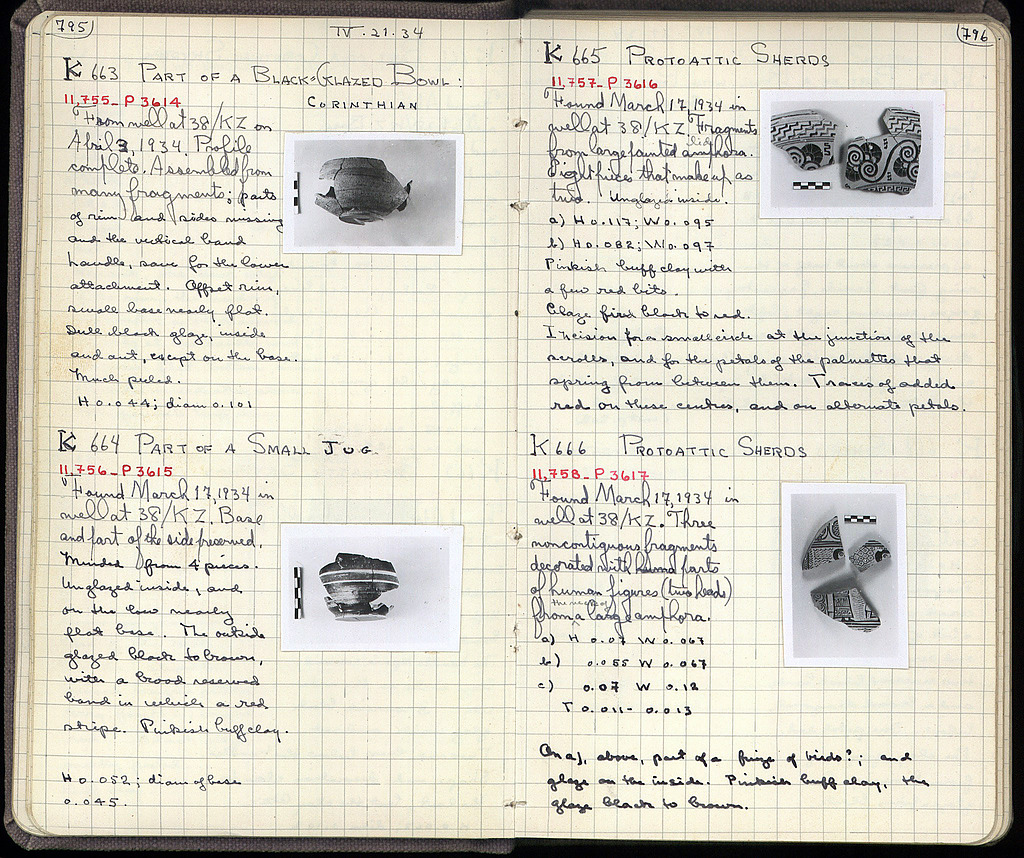 795
IV.21.34
K 663 PART OF A BLACK-GLAZED BOWL:
CORINTHIAN
11,755 - P 3614
From well at 38/KZ on
April 3, 1934. Profile
complete. Assembled from
many fragments; parts
of rim and sides missing
and the vertical band
handle, save for the lower
attachment. Offset rim,
small base nearly flat.
Dull black glaze, inside
and out, except on the base.
Much peeled.
H 0.044; diam 0.101
K 664 PART OF A SMALL JUG.
11,756 - P 3615
Found March 17, 1934 in
well at 38/KZ. Base
and part of the side preserved.
Mended from 4 pieces.
Unglazed inside, and
on the low nearly
flat base. The outside
glazed black to brown,
with a broad reserved
band in which a red
stripe. Pinkish buff clay.
H 0.052; diam of base
0.045.
796
K 665 PROTOATTIC SHERDS
11,757 - P 3616
Found March 17, 1934 in
well at 38/KZ. Fragments
from large lidded amphora.
Eight pieces that make up as
two. Unglazed inside.
a) H 0.117; W 0.095
b) H 0.082; W 0.097
Pinkish buff clay with
a few red bits.
Glaze fired black to red.
Incision for a small circle at the junction of the
scrolls, and for the petals of the palmettes that
spring from between them. Traces of added
red on these centres, and on alternate petals.
K 666 PROTOATTIC SHERDS
11,758 - P 3617
Found March 17, 1934 in
well at 38/KZ. Three
noncontiguous fragments
decorated with parts
of human figures (two heads)
from the neck of a large amphora.
a) H 0.07 W 0.067
b) 0.055 W 0.067
c) 0.07 W 0.12
T 0.011 - 0.013
On a), above, part of a frieze of birds?; and
glaze on the inside. Pinkish buff clay, the
glaze black to brown.